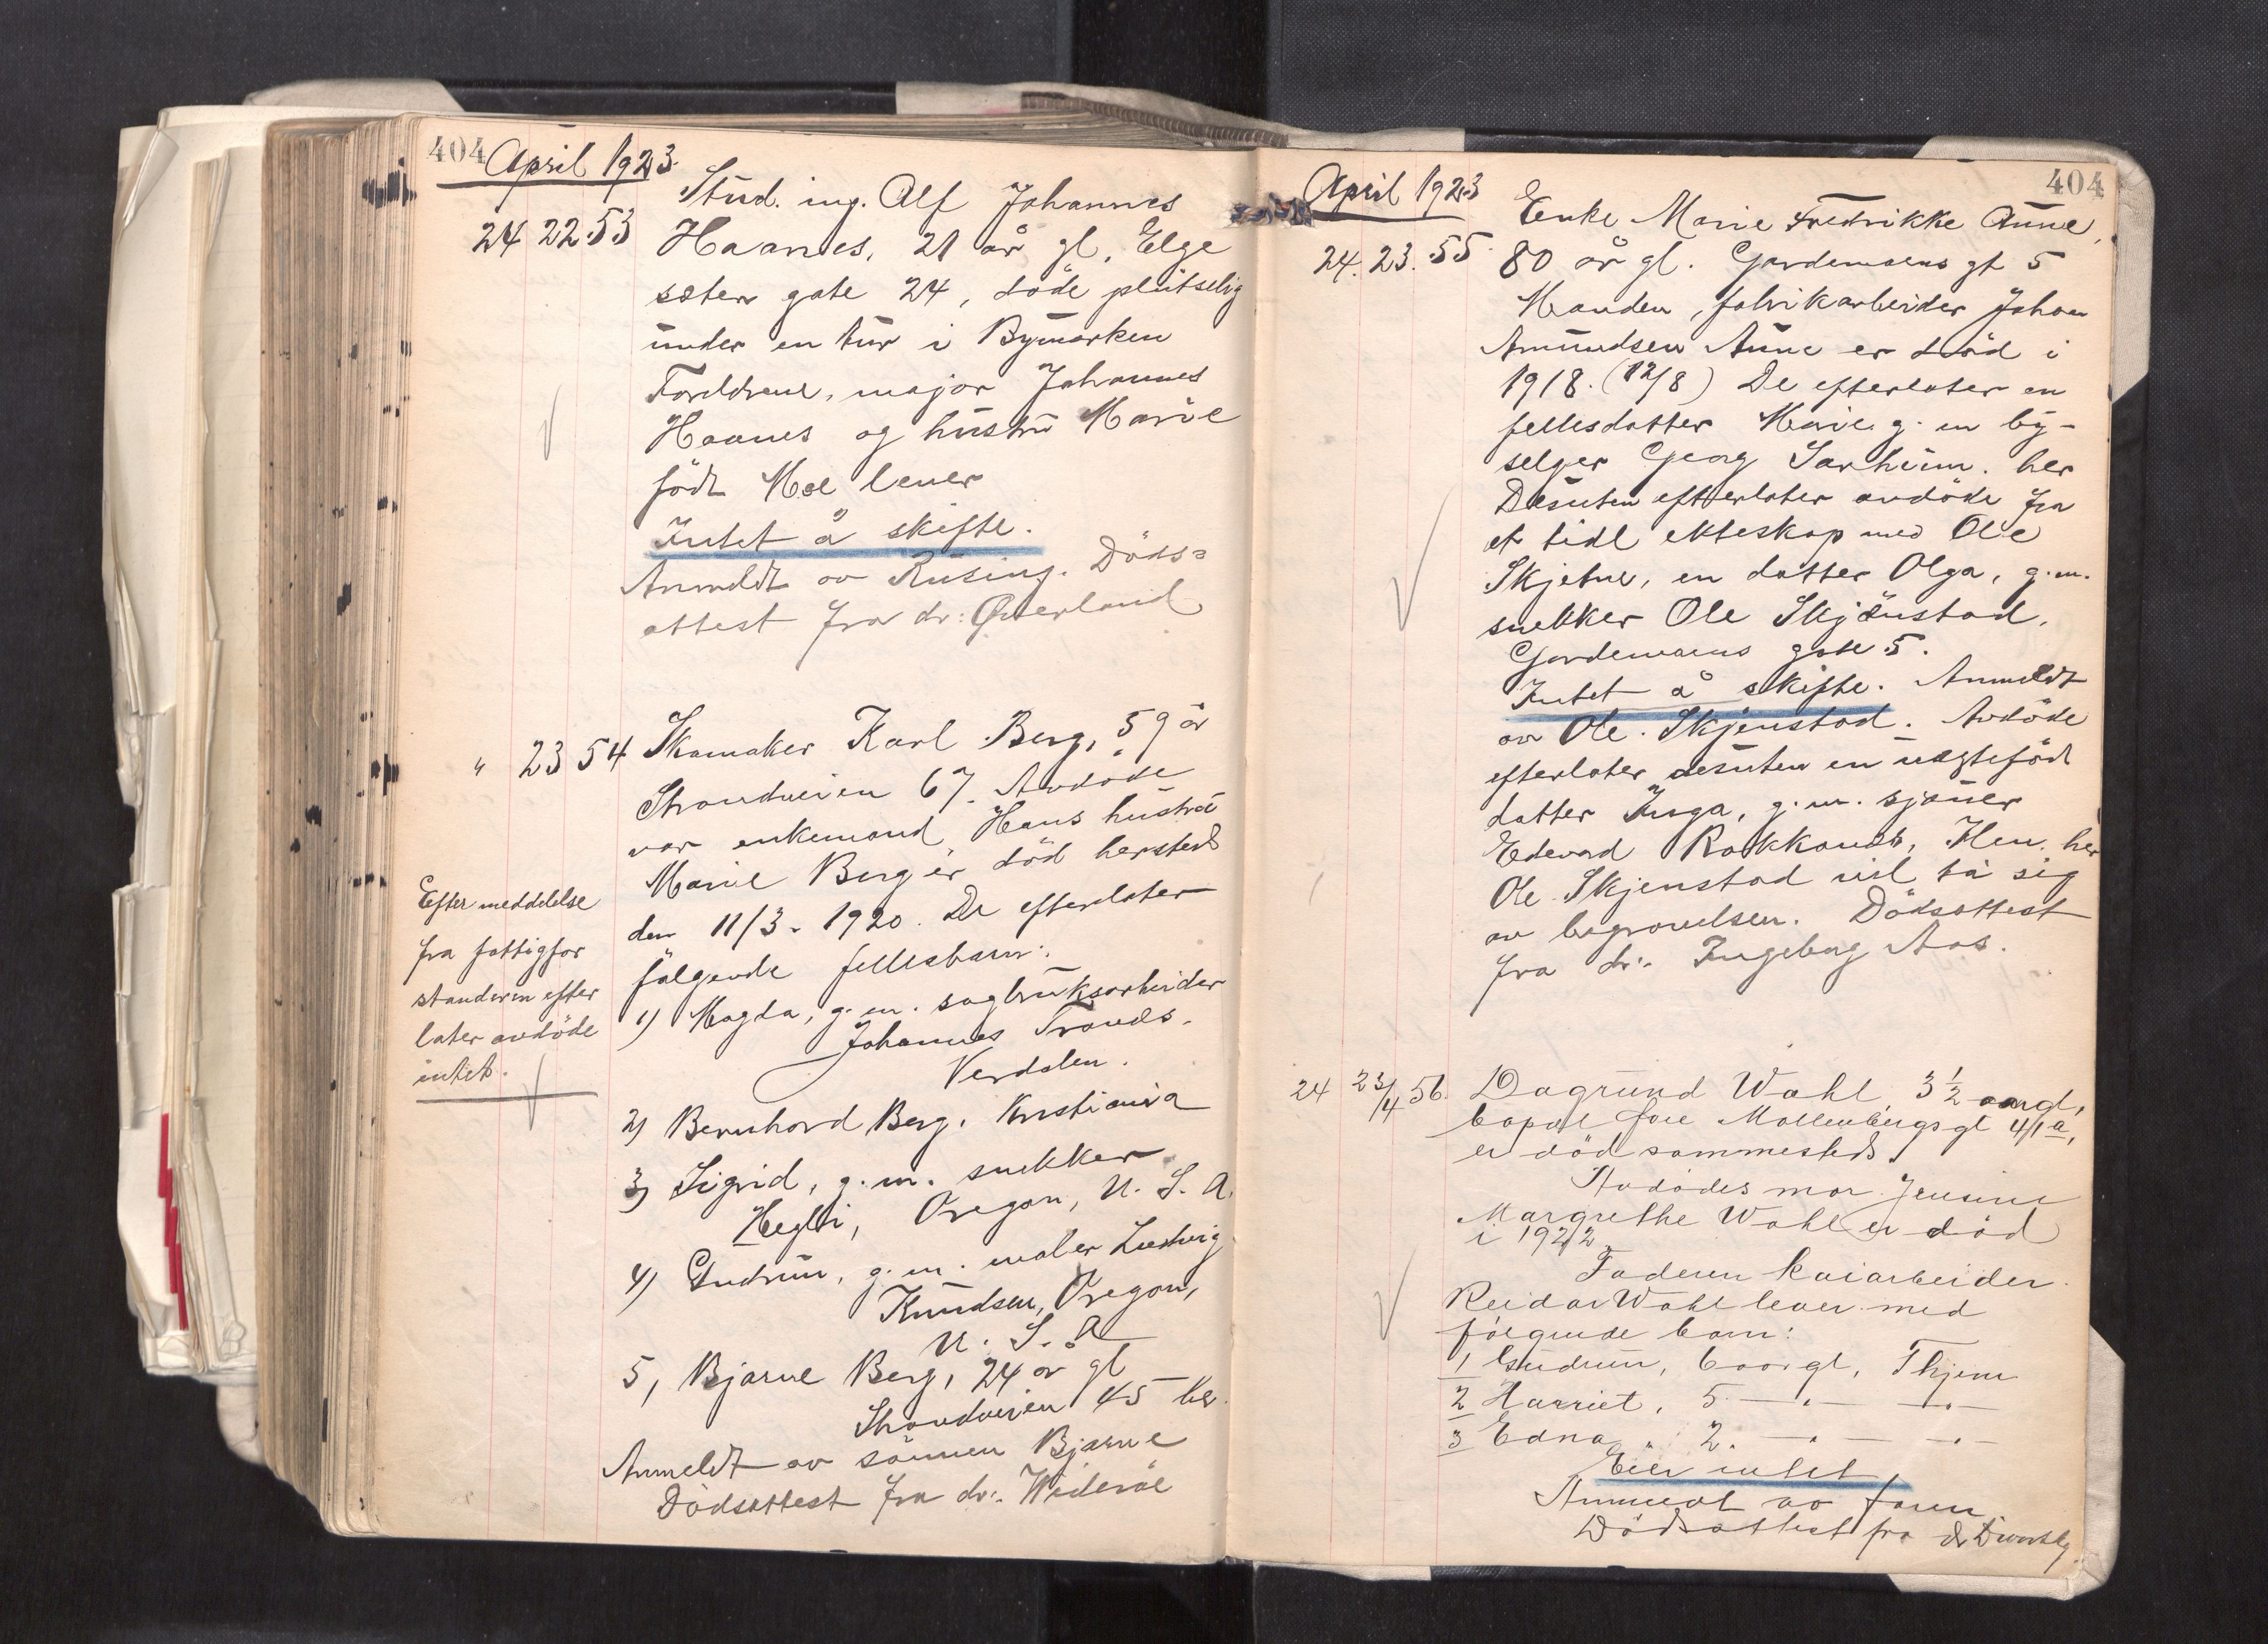 404 April 1923
24 22 53 Stud. ing. Alf Johannes
Haanes, 21 år gl, Elge
sæter gate 24, døde plutselig
under en tur i Bymarken
Foreldrene, major Johannes
Haanes og hustru Marie
født Moe lever
Intet å skifte.
Anmeldt av Rusing. Døds=
attest fra dr: Øverland
" 23 54 Skomaker Karl Berg, 59 år
Strandveien 67. Avdøde
var enkemand Hans hustru
Marie Berg er død hersteds
den 11/3. 1920. De efterlater
følgende fellesbarn:
1) Magda, g. m. sagbruksarbeider
Johannes Tronds.
Verdalen.
2) Bernhard Berg. Kristiania
3) Sigrid, g. m. snekker
Oregon, U. S. A.
4) Gudrun, g. m. maler Ludvig
Knudsen, Oregon,
U. S. A
5, Bjarne Berg, 24 år gl
Strandveien 45 her.
Anmeldt av sønnen Bjarne
Dødsattest fra dr. Widerøe
Efter meddelelse
fra fattigfor
standeren efter
later avdøde
intet.
April 1923 404
24. 23. 55. Enke Marie Fredrikke Aune,
80 år gl. Gardemoens gt 5
Manden, fabrikarbeider Johan
Amundsen Aune er død i
1918. (12/8) De efterlater en
fellesdatter Marie g. m by-
selger Georg Sarheim. her
Desuten efterlater avdøde fra
et tidl ekteskap med Ole
Skjetne, en datter Olga, g. m.
snekker Ole Skjenstad.
Gardemoens gate 5.
Intet å skifte. Anmeldt
av Ole. Skjenstad. Avdøde
efterlater desuten en uegtefød
datter Inga, g. m. sjauer
Edevard Rokkones, Ilen. her
Ole Skjenstad vil ta sig
av begravelsen. Dødsattest
fra dr. Ingeborg Aas.
24 23/4 56. Dagrund Wahl 3 1/2 aargl,
bopæl Øvre Møllenbergsgt 4/1 a,
er død sammesteds.
Avdødes mor Jensine
Margrethe Wahl er død
i 1922
Faderen kaiarbeider
Reidar Wahl lever med
følgende barn:
1 Gudrun, 6 aar gl, Thjem
2 Harriet, 5 — " — — " —
3 Edna " 2. — " — — " —
Eier intet
Anmeldt av faren
Dødsattest fra dr